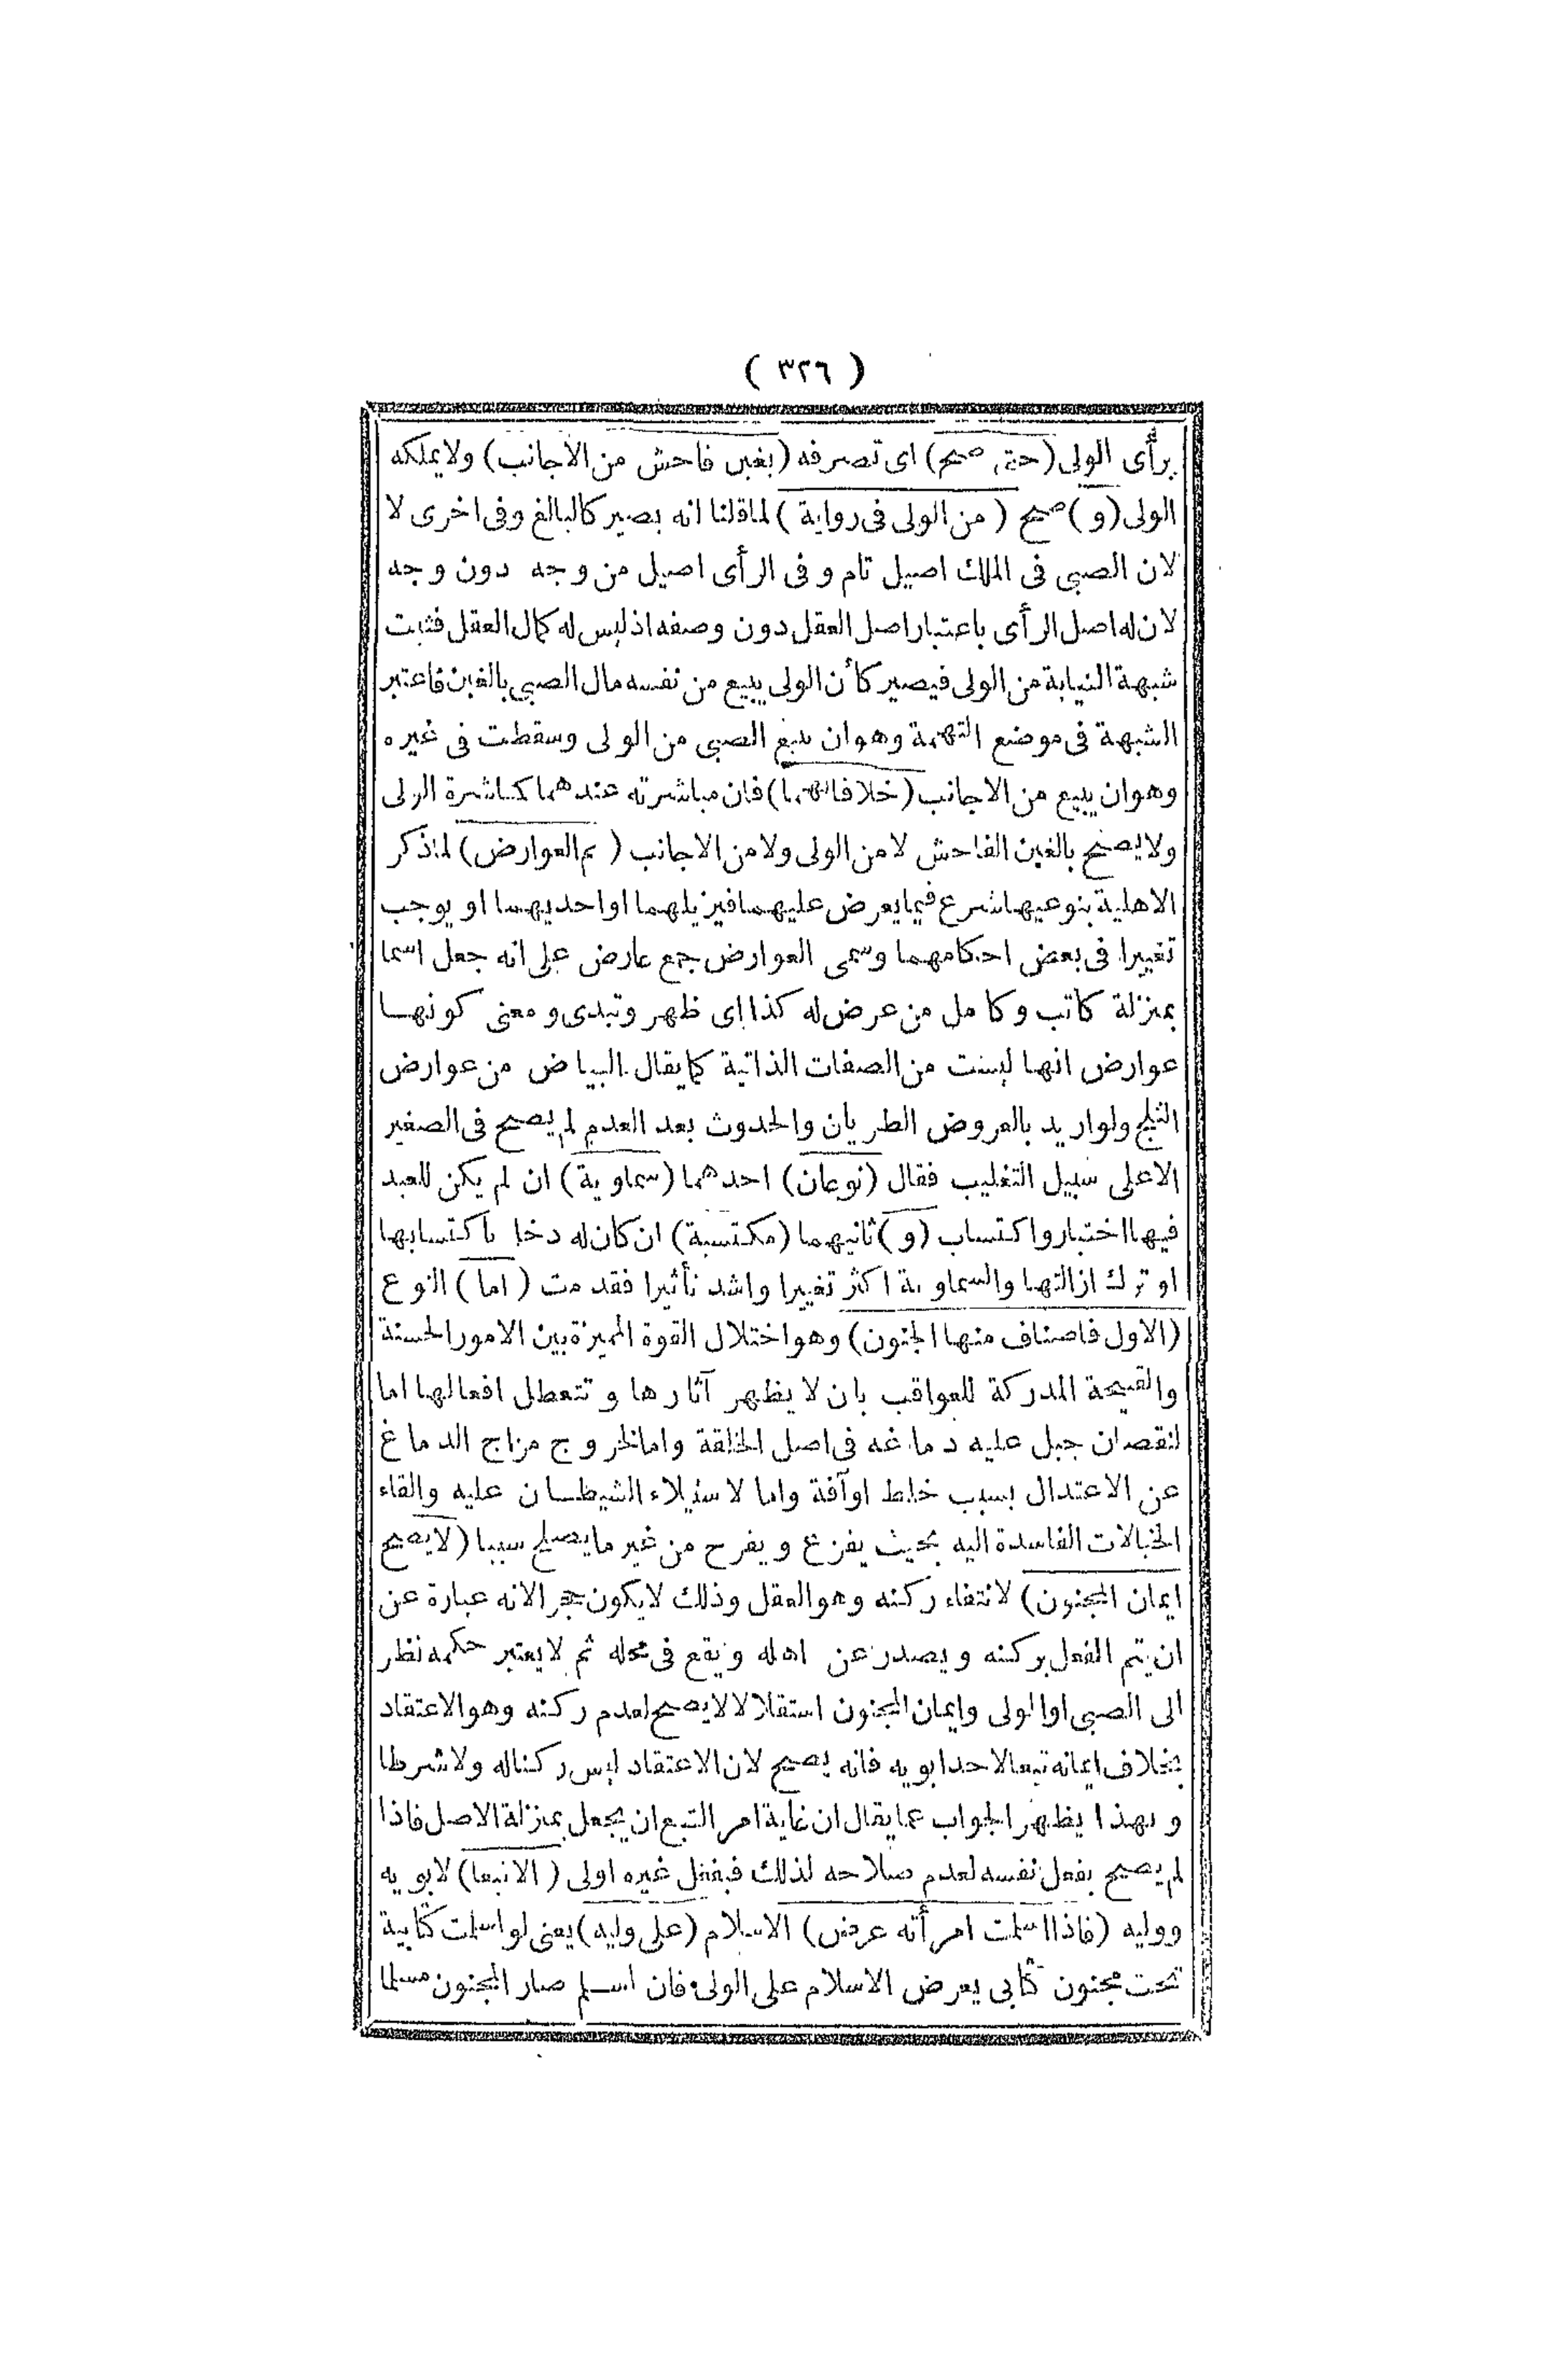 ( ٣٢٦ )
برأى الولى (حتى صح) اى تصرفه (بغبن فاحش من الاجانب) ولا يملكه
الولى (و) صح ( من الولى فى رواية ) لما قلنا انه يصير كالبالغ وفى اخرى لا
لان الصبى فى الملك اصيل تام و فى الرأى اصيل من وجه دون وجه
لان له اصل الرأى باعتبار اصل العقل دون وصفه اذ ليس له كمال العقل فثبت
شبهة النيابة من الولى فيصير كأن الولى يبيع من نفسه مال الصبى بالغبن فاعتبر
الشبهة فى موضع التهمة وهو ان يبيع الصبى من الولى وسقطت فى غيره
وهو ان يبيع من الاجانب (خلافا لهما) فان مباشرته عندهما كمباشرة الولى
ولا يصح بالغبن الفاحش لا من الولى ولا من الاجانب ( ثم العوارض) لما ذكر
الاهلية بنوعيها شرع فيما يعرض عليهما فيزيلهما او احديهما او يوجب
تغييرا فى بعض احكامهما وسمى العوارض جمع عارض على انه جعل اسما
بمنزلة كاتب وكامل من عرض له كذا اى ظهر وتبدى و معنى كونها
عوارض انها ليست من الصفات الذاتية كما يقال البياض من عوارض
الثلج ولو اريد بالعروض الطريان والحدوث بعد العدم لم يصح فى الصغير
الا على سبيل التغليب فقال (نوعان) احدهما (سماوية) ان لم يكن للعبد
فيها اختيار واكتساب (و) ثانيهما (مكتسبة) ان كان له دخل باكتسابها
او ترك ازالتها والسماوية اكثر تغييرا واشد تأثيرا فقدمت ( اما ) النوع
(الاول فاصناف منها الجنون) وهو اختلال القوة المميزة بين الامور الحسنة
والقبيحة المدركة للعواقب بان لا يظهر آثارها و تتعطل افعالها اما
لنقصان جبل عليه دماغه فى اصل الخلقة واما لخروج مزاج الدماغ
عن الاعتدال بسبب خلط او آفة واما لاستيلاء الشيطان عليه والقاء
الخيالات الفاسدة اليه بحيث يفزع و يفرح من غير ما يصلح سببا (لا يصح
ايمان المجنون) لانتفاء ركنه وهو العقل وذلك لا يكون حجرا لانه عبارة عن
ان يتم الفعل بركنه و يصدر عن اهله و يقع فى محله ثم لا يعتبر حكمه نظرا
الى الصبى او الولى وايمان المجنون استقلالا لا يصح لعدم ركنه وهو الاعتقاد
بخلاف ايمانه تبعا لاحد ابويه فانه يصح لان الاعتقاد ليس ركنا له ولا شرطا
و بهذا يظهر الجواب عما يقال ان غاية امر التبع ان يجعل بمنزلة الاصل فاذا
لم يصح بفعل نفسه لعدم صلاحه لذلك فبفعل غيره اولى ( الا تبعا) لابويه
ووليه (فاذا اسلمت امرأته عرض) الاسلام (على وليه) يعنى لو اسلمت كتابية
تحت مجنون كتابى يعرض الاسلام على الولى فان اسلم صار المجنون مسلما